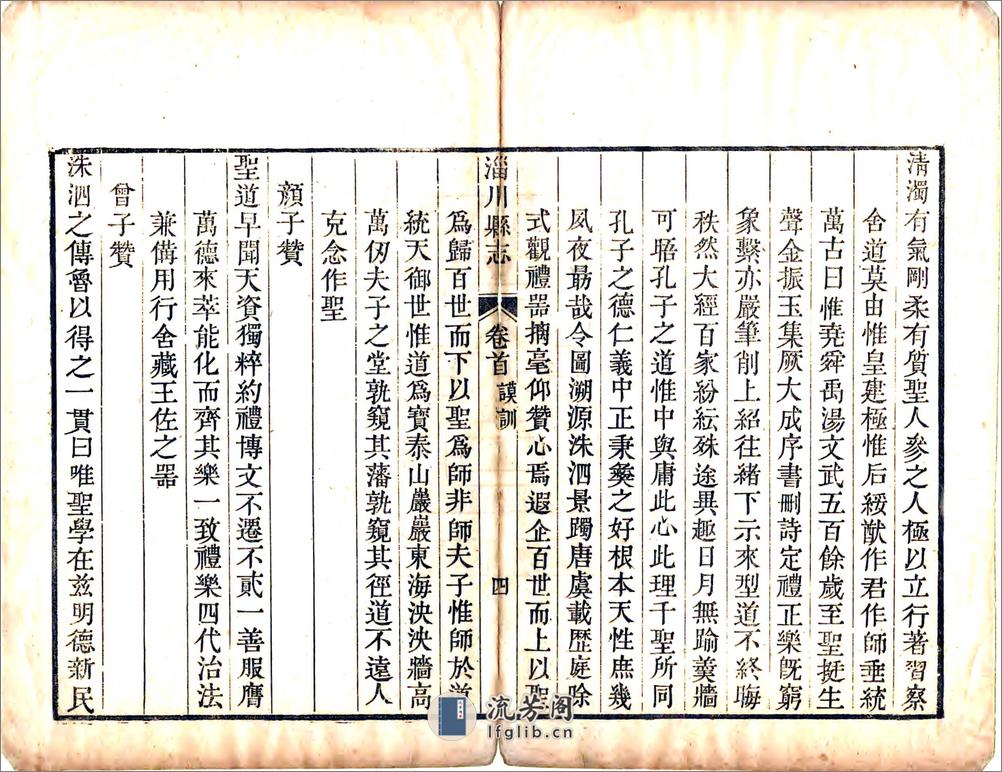 清濁有氣剛柔有質聖人參之人極以立行著習察
舍道莫由惟皇建極惟后綏猷作君作師垂統
萬古曰惟堯舜禹湯文武五百餘歲至聖挺生
聲金振玉集厥大成序書刪詩定禮正樂旣窮
象繫亦嚴筆削上紹往緒下示來型道不終晦
秩然大經百家紛紜殊途異趣日月無踰羹牆
可晤孔子之道惟中與庸此心此理千聖所同
孔子之德仁義中正秉彝之好根本天性庶幾
夙夜勗哉令圖溯源洙泗景躅唐虞載歷庭除
式觀禮器摛毫仰贊心焉遐企百世而上以聖
淄川縣志
卷首 謨訓
四
爲歸百世而下以聖爲師非師夫子惟師於道
統天御世惟道爲寶泰山巖巖東海泱泱牆高
萬仞夫子之堂孰窺其藩孰窺其徑道不遠人
克念作聖
顏子贊
聖道早聞天資獨粹約禮博文不遷不貳一善服膺
萬德來萃能化而齊其樂一致禮樂四代治法
兼備用行舍藏王佐之器
曾子贊
洙泗之傳魯以得之一貫曰唯聖學在兹明德新民
流芳阁
lfglib.cn